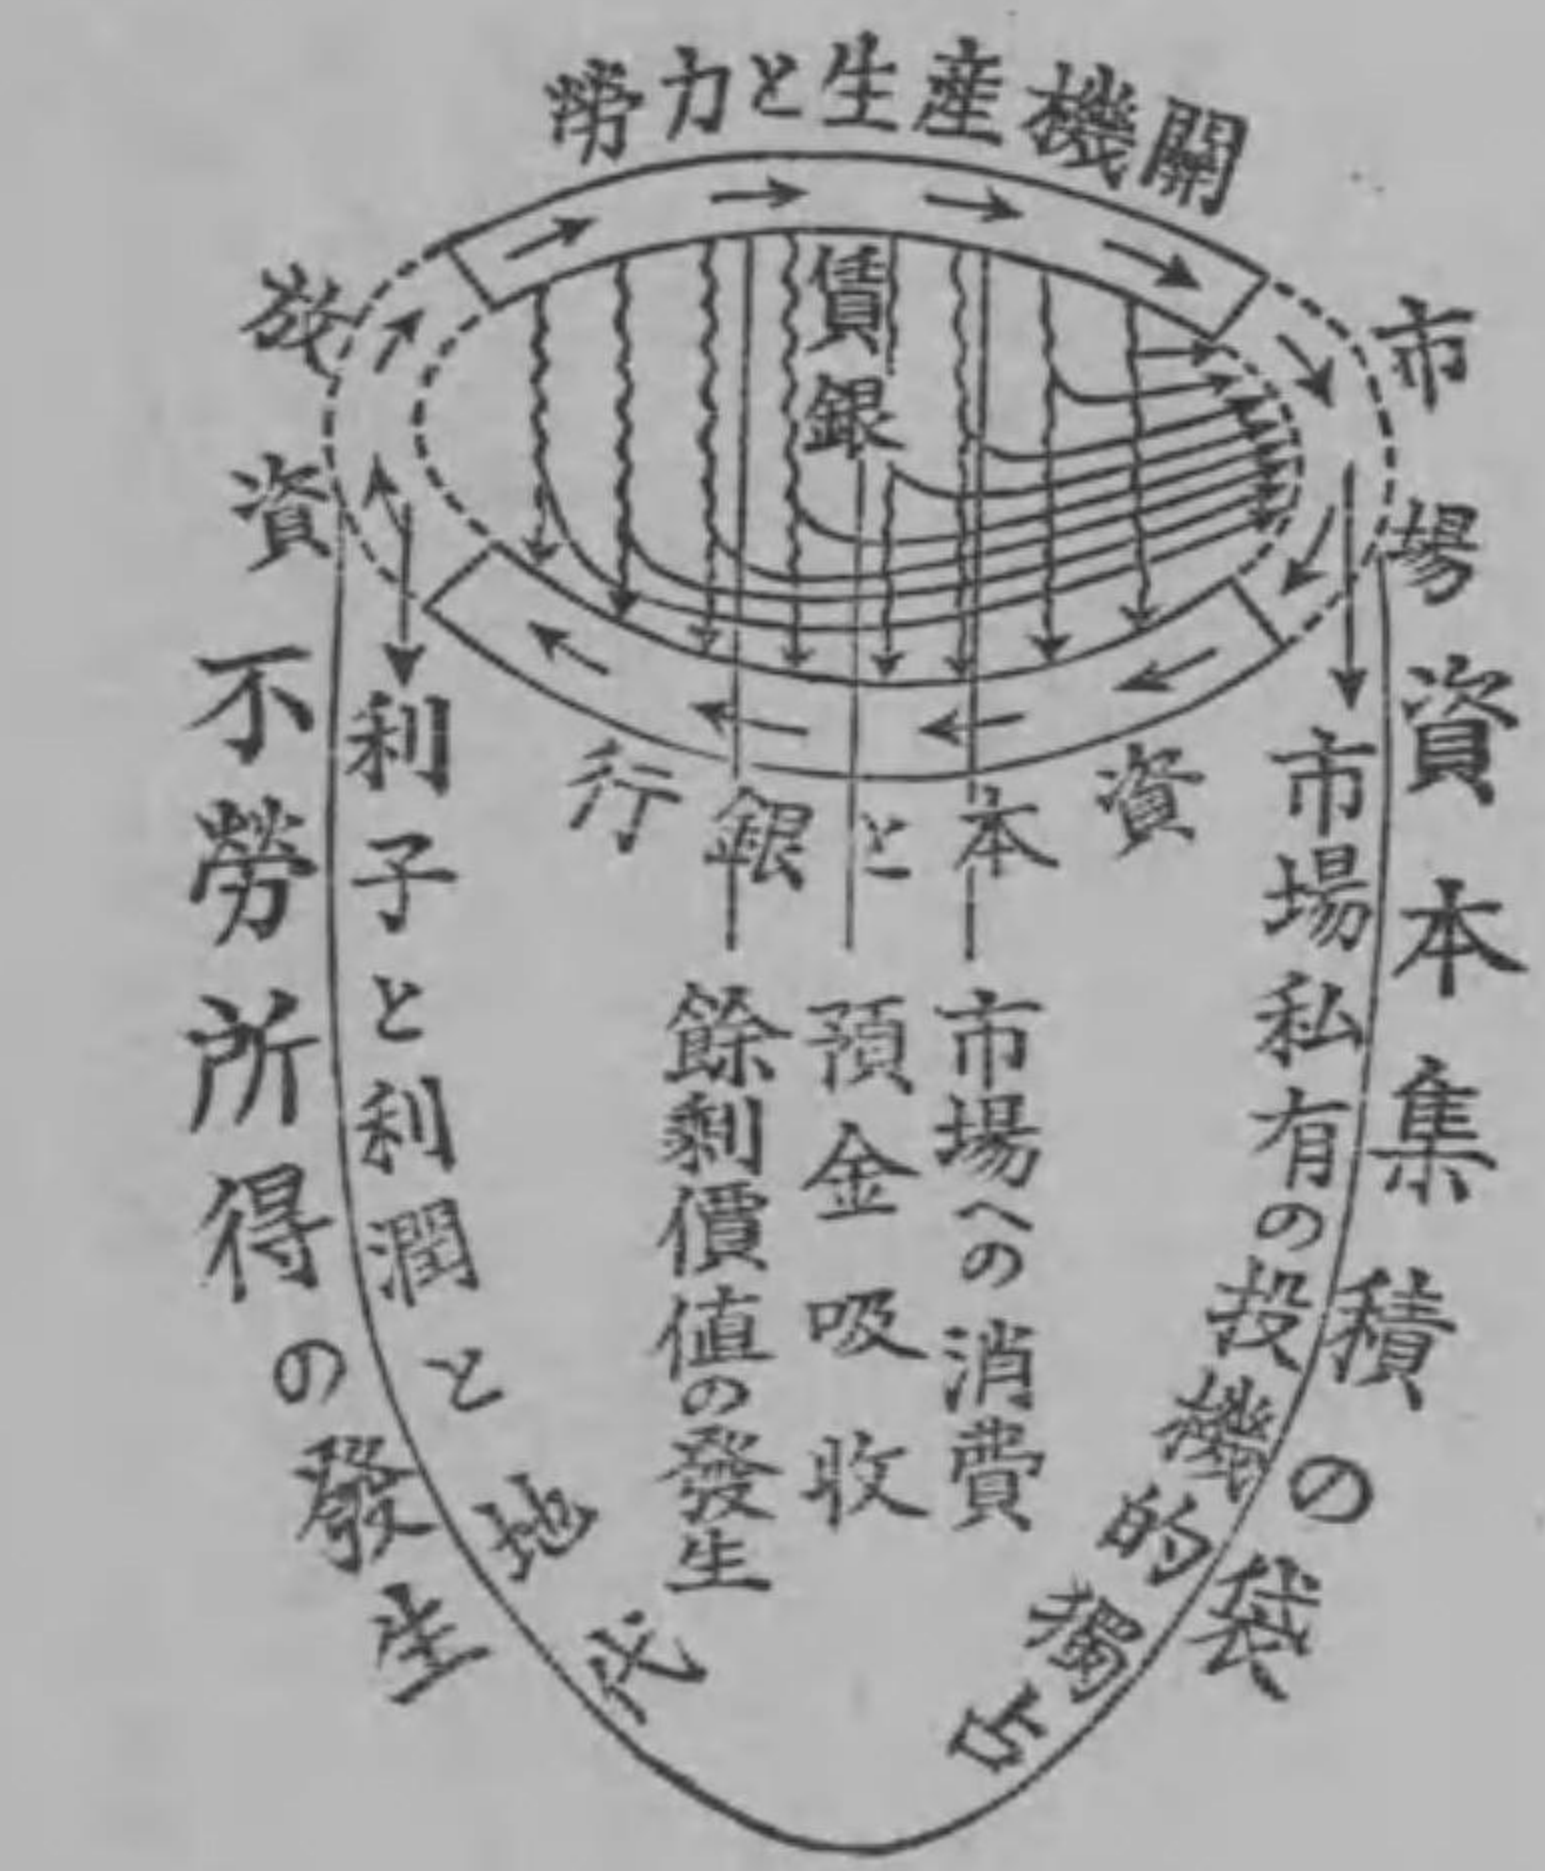 勞力と生産機關
市場
放資
賃銀
資本と銀行
市場資本集積の袋
市場私有の投機的獨占
市場への消費
預金吸收
餘剩價値の發生
利子と利潤と地代
不勞所得の發生